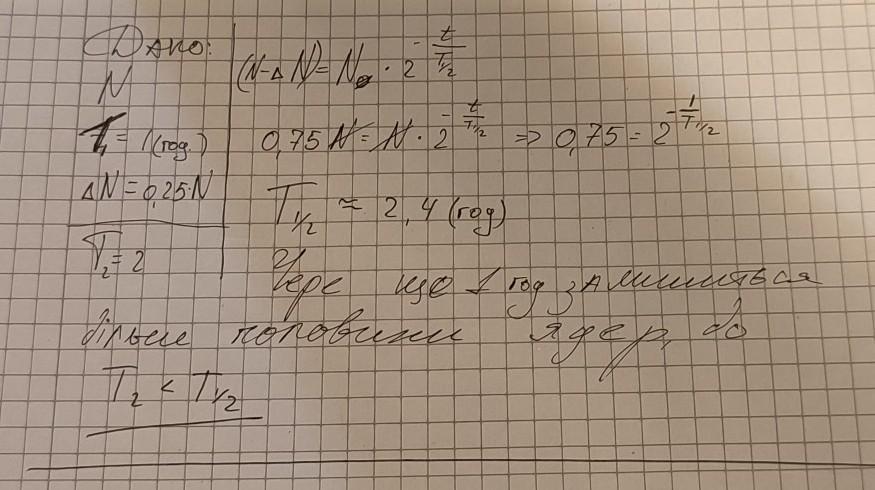 Дано:
N
T₁ = 1 (год.)
ΔN = 0,25·N
T₂ = 2
(N-ΔN) = N₀ · 2^(-t/T₁/₂)
0,75 N = N · 2^(-t/T₁/₂) => 0,75 = 2^(-1/T₁/₂)
T₁/₂ ≈ 2,4 (год)
Чере що 1 год залишиться
більше половини ядер, бо
T₂ < T₁/₂